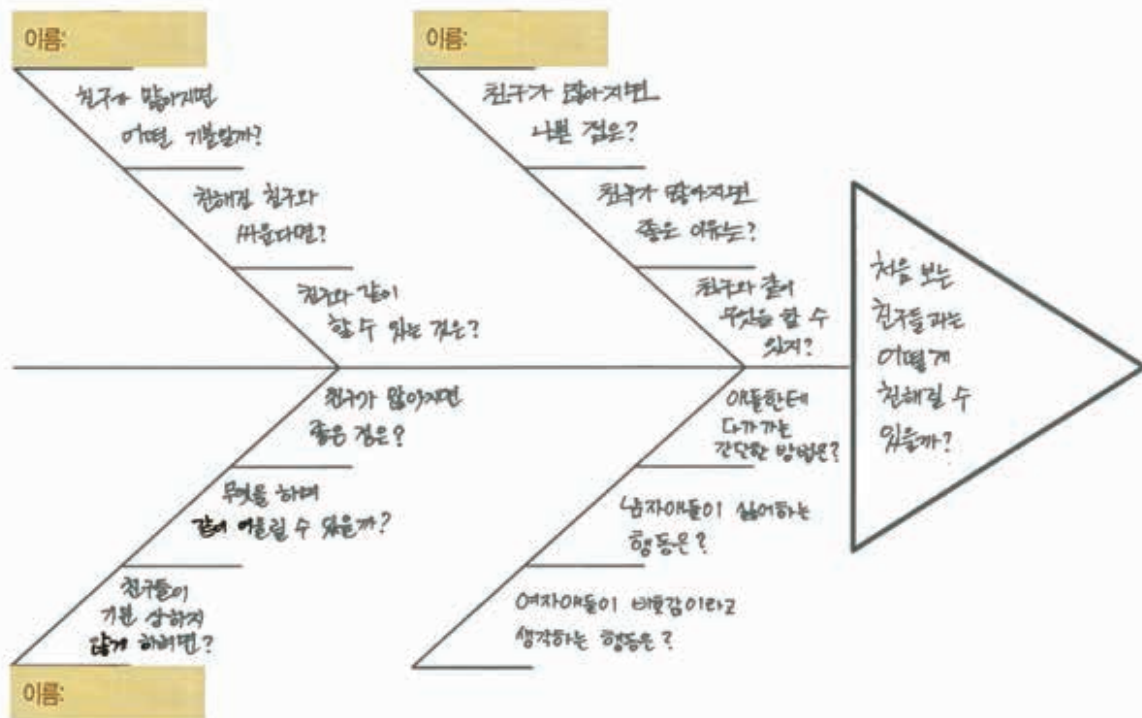 이름:
친구가 많아지면
어떤 기분일까?
친해진 친구와
싸운다면?
친구와 같이
할 수 있는 것은?
이름:
친구가 많아지면
나쁜 점은?
친구가 많아지면
좋은 이유는?
친구와 같이
무엇을 할 수
있지?
친구가 많아지면
좋은 점은?
무엇을 하며
같이 어울릴 수 있을까?
친구들이
기분 상하지
않게 하려면?
이름:
애들한테
다가가는
간단한 방법은?
남자애들이 싫어하는
행동은?
여자애들이 비호감이라고
생각하는 행동은?
처음 보는
친구들과는
어떻게
친해질 수
있을까?